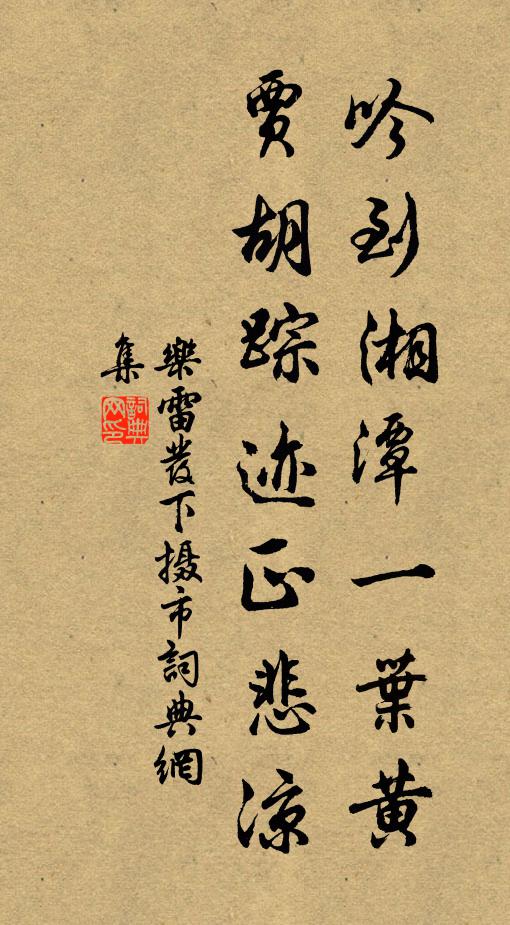 吟到湘潭一葉黄
賈胡踪迹正悲凉
樂雷發下摄市詞典網
集
詞典网印